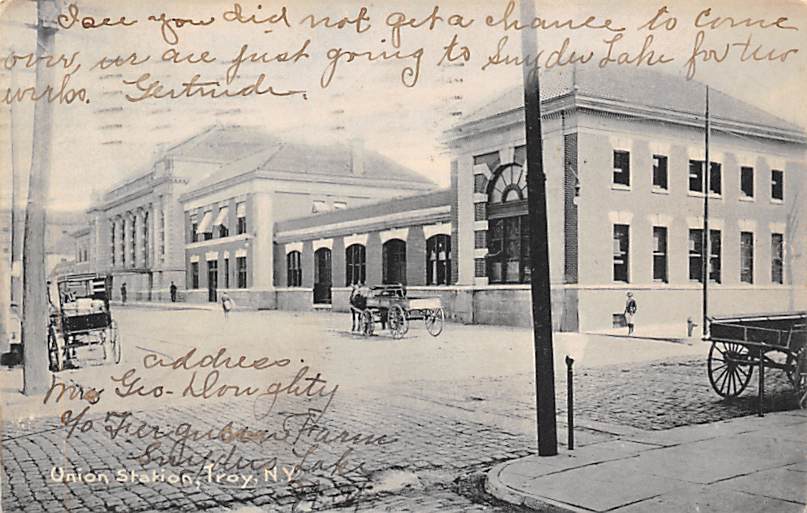 I see you did not get a chance to come
over, we are just going to Snyder Lake for two
works. Gertrude.
address.
Mrs Geo. Doughty
c/o Ferguson Farm
Snyders Lake
Union Station, Troy, N.Y.